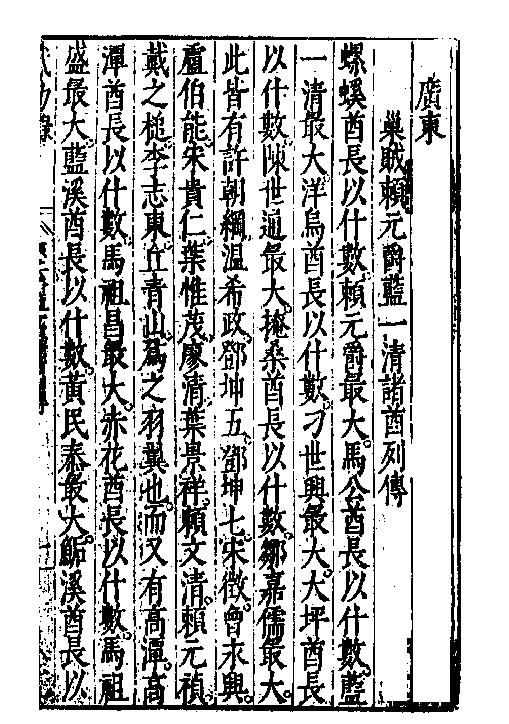 廣東
巢賊賴元爵藍一清諸酋列傳
螺蟆酋長以什數賴元爵最大馬公酋長以什數藍
一清最大洋烏酋長以什數刁世興最大大坪酋長
以什數陳世通最大掩桑酋長以什數鄒嘉儒最大
此皆有許朝綱溫希政鄧坤五鄧坤七宋徵會永興
盧伯能宋貴仁葉惟茂廖清葉景祥賴文清賴元禎
戴之槌李志東丘青山為之羽翼也而又有高潭高
潭酋長以什數馬祖昌最大赤花酋長以什數馬祖
盛最大藍溪酋長以什數黃民泰最大 溪酋長以
武功錄